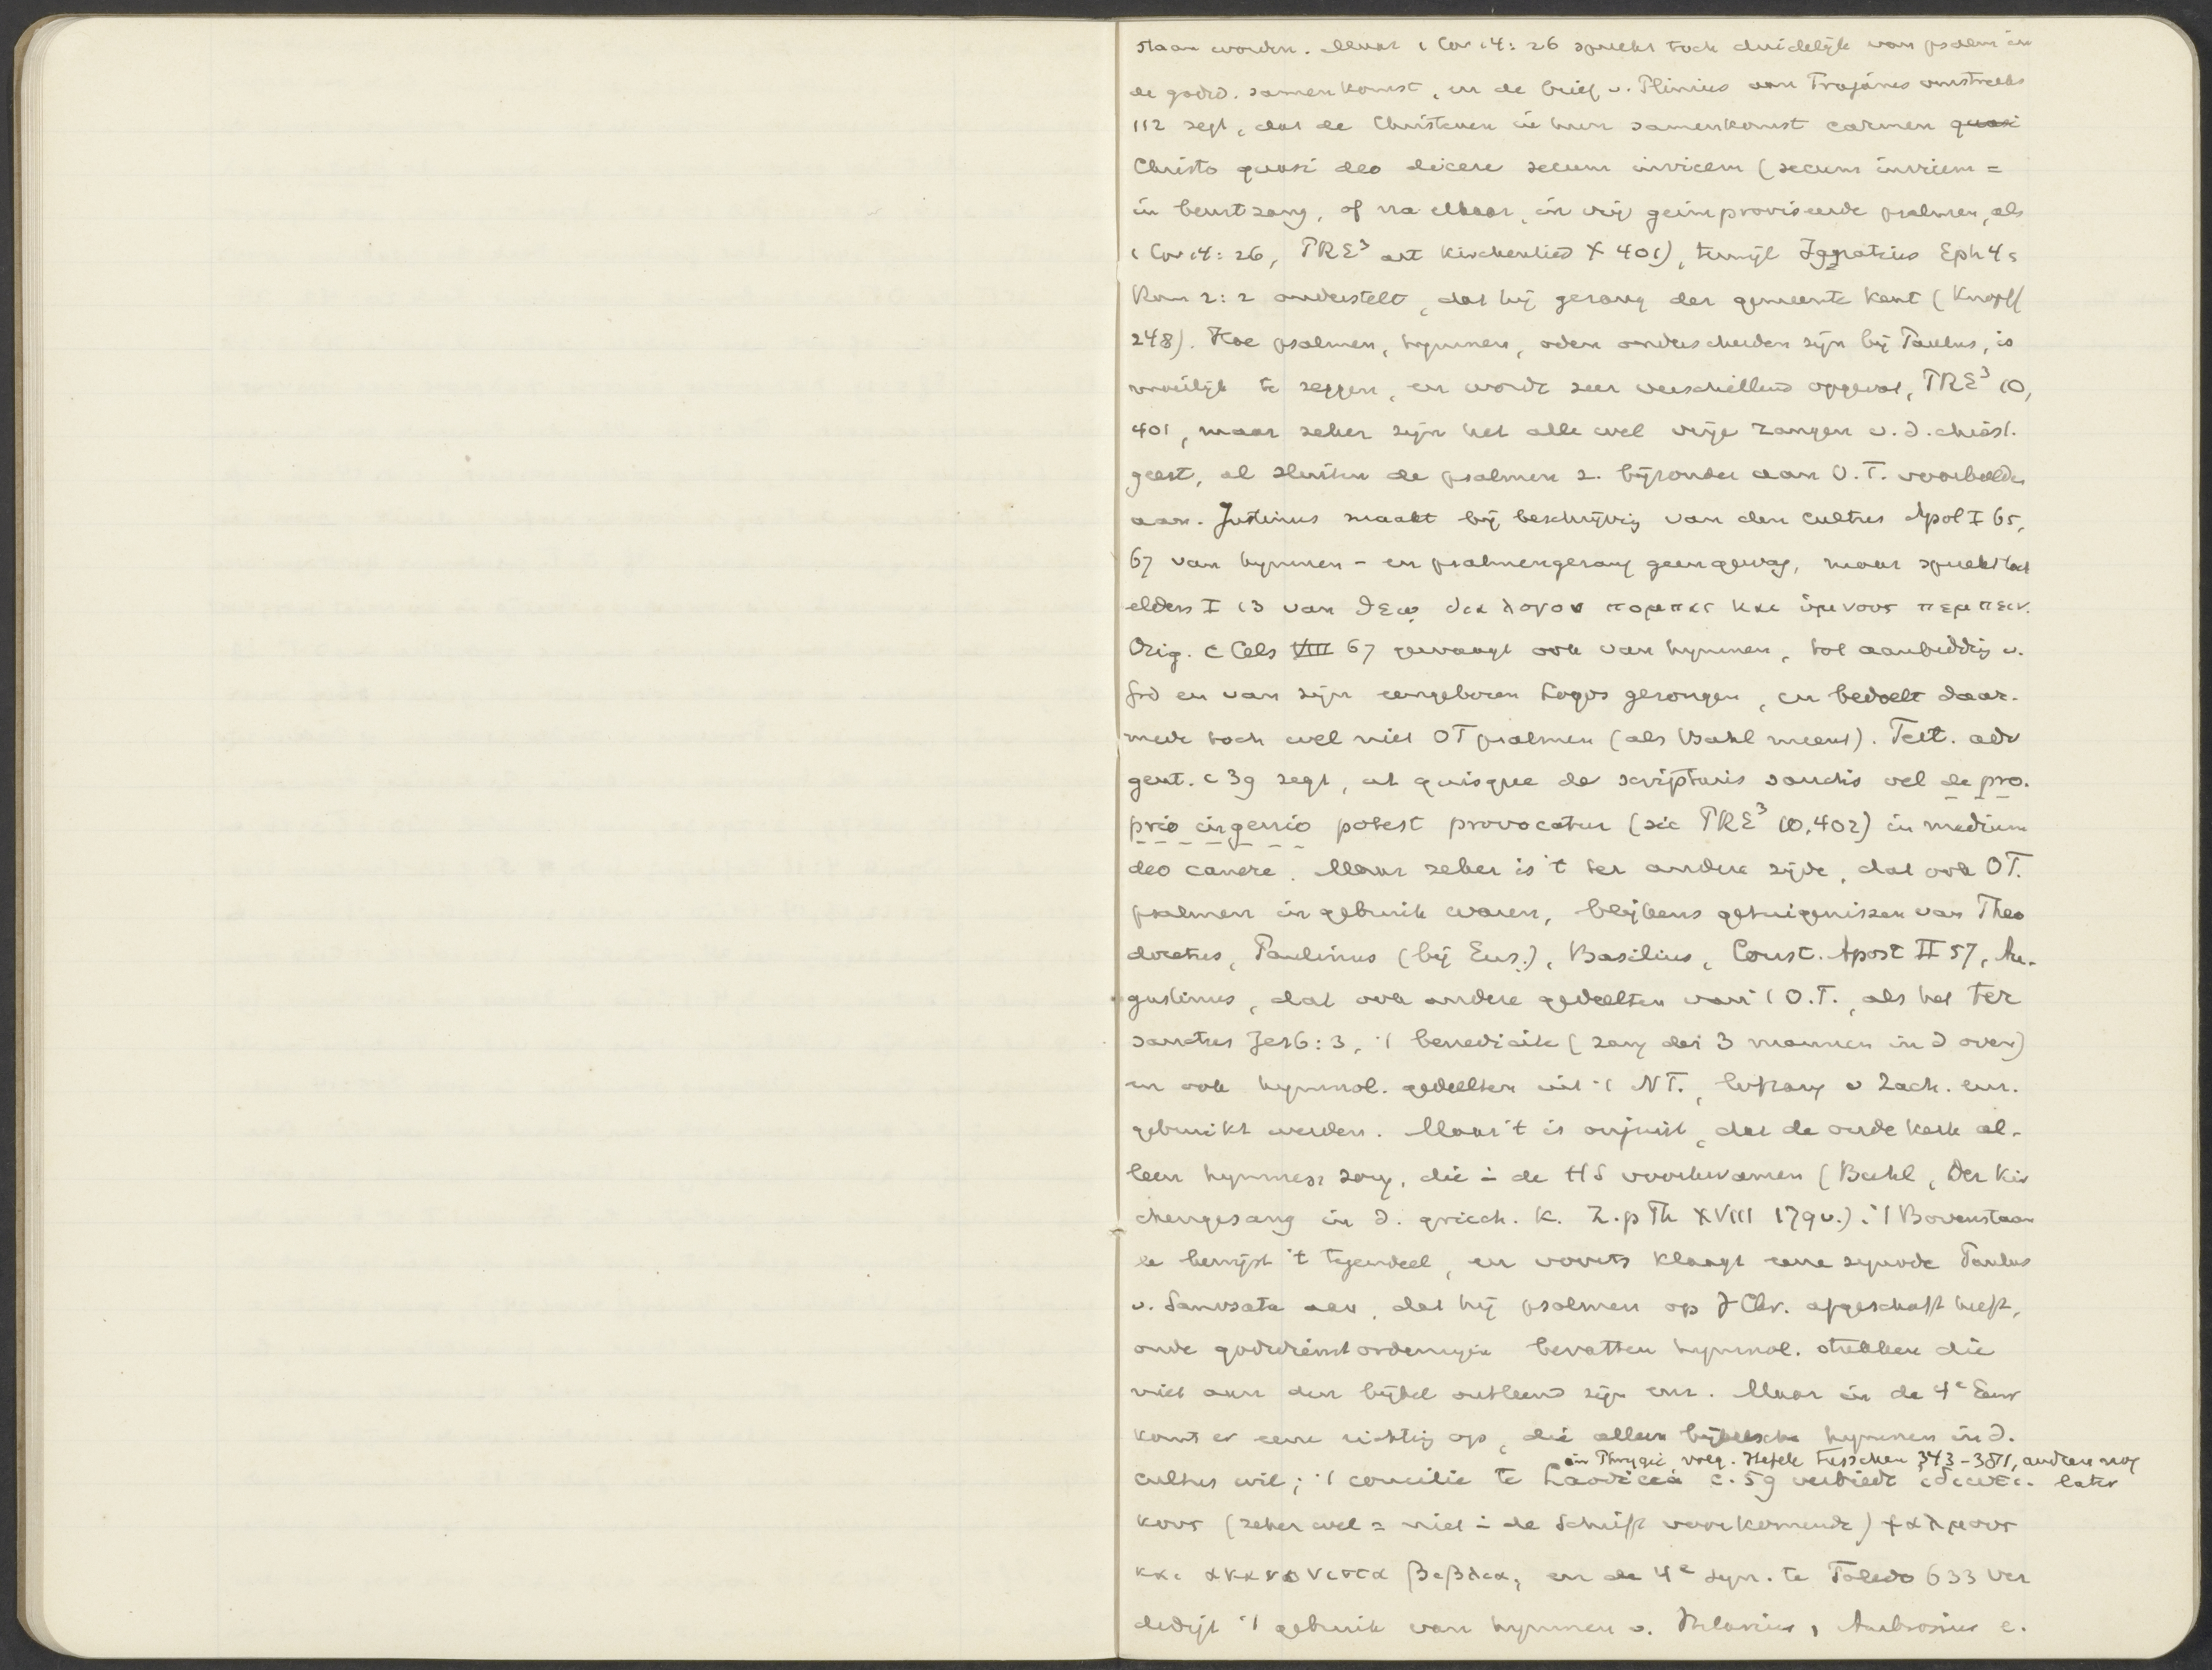 staan worden. Maar 1 Cor 14:26 spreekt toch duidelijk van psalm in
de godsd. samenkomst, en de brief v. Plinius aan Trajanus omstreeks
112 zegt, dat de Christenen in hun samenkomst carmen quasi
Christo quasi deo dicere secum invicem (secum invicem =
in beurtzang, of na elkaar, in vrij geimproviseerde psalmen, als
1 Cor 14:26, PRE³ art Kirchenlied X 401), terwijl Ignatius Eph 4,
Rom 2:2 onderstelt, dat hij gezang der gemeente kent (Knopf
248). Hoe psalmen, hymnen, oden onderscheiden zijn bij Paulus, is
moeilijk te zeggen, en wordt zeer verschillend opgevat, PRE³ 10,
401, maar zeker zijn het alle wel vrije zangen v. d. christ.
geest, al sluiten de psalmen z. bijzonder aan O.T. voorbeelden
aan. Justinus maakt bij beschrijving van den cultus Apol I 65,
67 van hymnen- en psalmengezang geen gewag, maar spreekt toch
elders I 13 van θεῳ δια λογου πομπας και ὑμνους πεμπειν.
Orig. c Cels VIII 67 gewaagt ook van hymnen, tot aanbidding v.
God en van zijn eengeboren Logos gezongen, en bedoelt daar-
mede toch wel niet OT psalmen (als Buhl meent). Tert. adv
gent. c 39 zegt, ut quisque de scripturis sanctis vel de pro-
prio ingenio potest provocatur (zie PRE³ 10,402) in medium
deo canere. Maar zeker is 't ter andere zijde, dat ook OT.
psalmen in gebruik waren, blijkens getuigenissen van Theo
doretus, Paulinus (bij Eus.), Basilius, Const. Apost II 57, Au-
gustinus, dat ook andere gedeelten van 't O.T., als het ter
sanctus Jes 6:3, 't benedicite (zang der 3 mannen in d oven)
en ook hymnol. gedeelten uit 't NT., lofzang v Zach. enz.
gebruikt werden. Maar 't is onjuist, dat de oude kerk al-
leen hymnen zong, die i de HS voorkwamen (Buhl, Der Kir
chengesang in d. griech. K. Z.p Th XVIII 179v.). 't Bovenstaan
de bewijst 't tegendeel, en voorts klaagt eene synode Paulus
v. Samosata aan, dat hij psalmen op J Chr. afgeschaft heeft,
oude godsdienstordeningen bevatten hymnol. stukken die
niet aan den bijbel ontleend zijn enz. Maar in de 4ᵉ Eeuw
komt er eene richting op, die alleen bijbelsche hymnen in d.
in Phrygië, volg. Hefele tusschen 343-381, anderen nog
cultus wil; 't concilie te Laodicea c. 59 verbiedt ἰδιωτι- later
κους (zeker wel = niet i de Schrift voorkomende) ψαλμους
και ακανονιστα βιβλια, en de 4ᵉ syn. te Toledo 633 ver
dedigt 't gebruik van hymnen v. Hilarius, Ambrosius e.